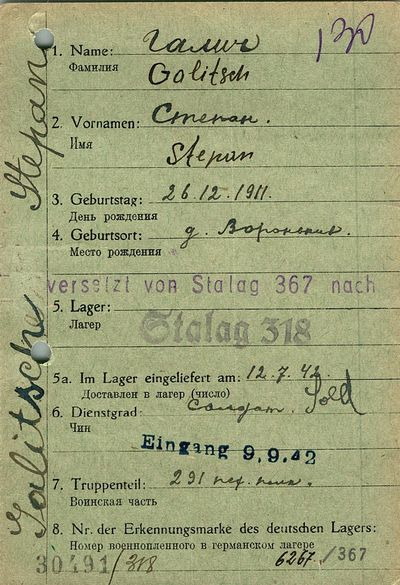 130
1. Name: Галич
Фамилия
Golitsch
2. Vornamen: Степан.
Имя
Stepan
3. Geburtstag: 26.12.1911.
День рождения
4. Geburtsort: д.
Место рождения
versetzt von Stalag 367 nach
5. Lager:
Лагер
Stalag 318
5a. Im Lager eingeliefert am: 12.7.42
Доставлен в лагер (число)
6. Dienstgrad: Солдат. Sold
Чин
Eingang 9.9.42
7. Truppenteil: 291 пех. полк.
Воинская часть
8. Nr. der Erkennungsmarke des deutschen Lagers:
Номер военнопленного в германском лагере
30491/318 6267/367
Galitsch Stepan